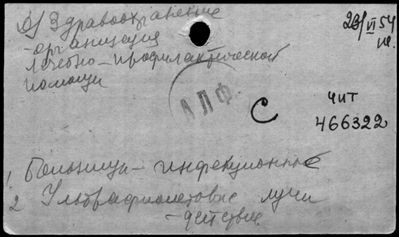 5) Здравоохранение
- организация
лечебно-профилактической
помощи
23/VI 54
АЛФ.
С
ЧИТ
466322
1 Больница - инфекционные
2 Ультрафиолетовые лучи
- действие